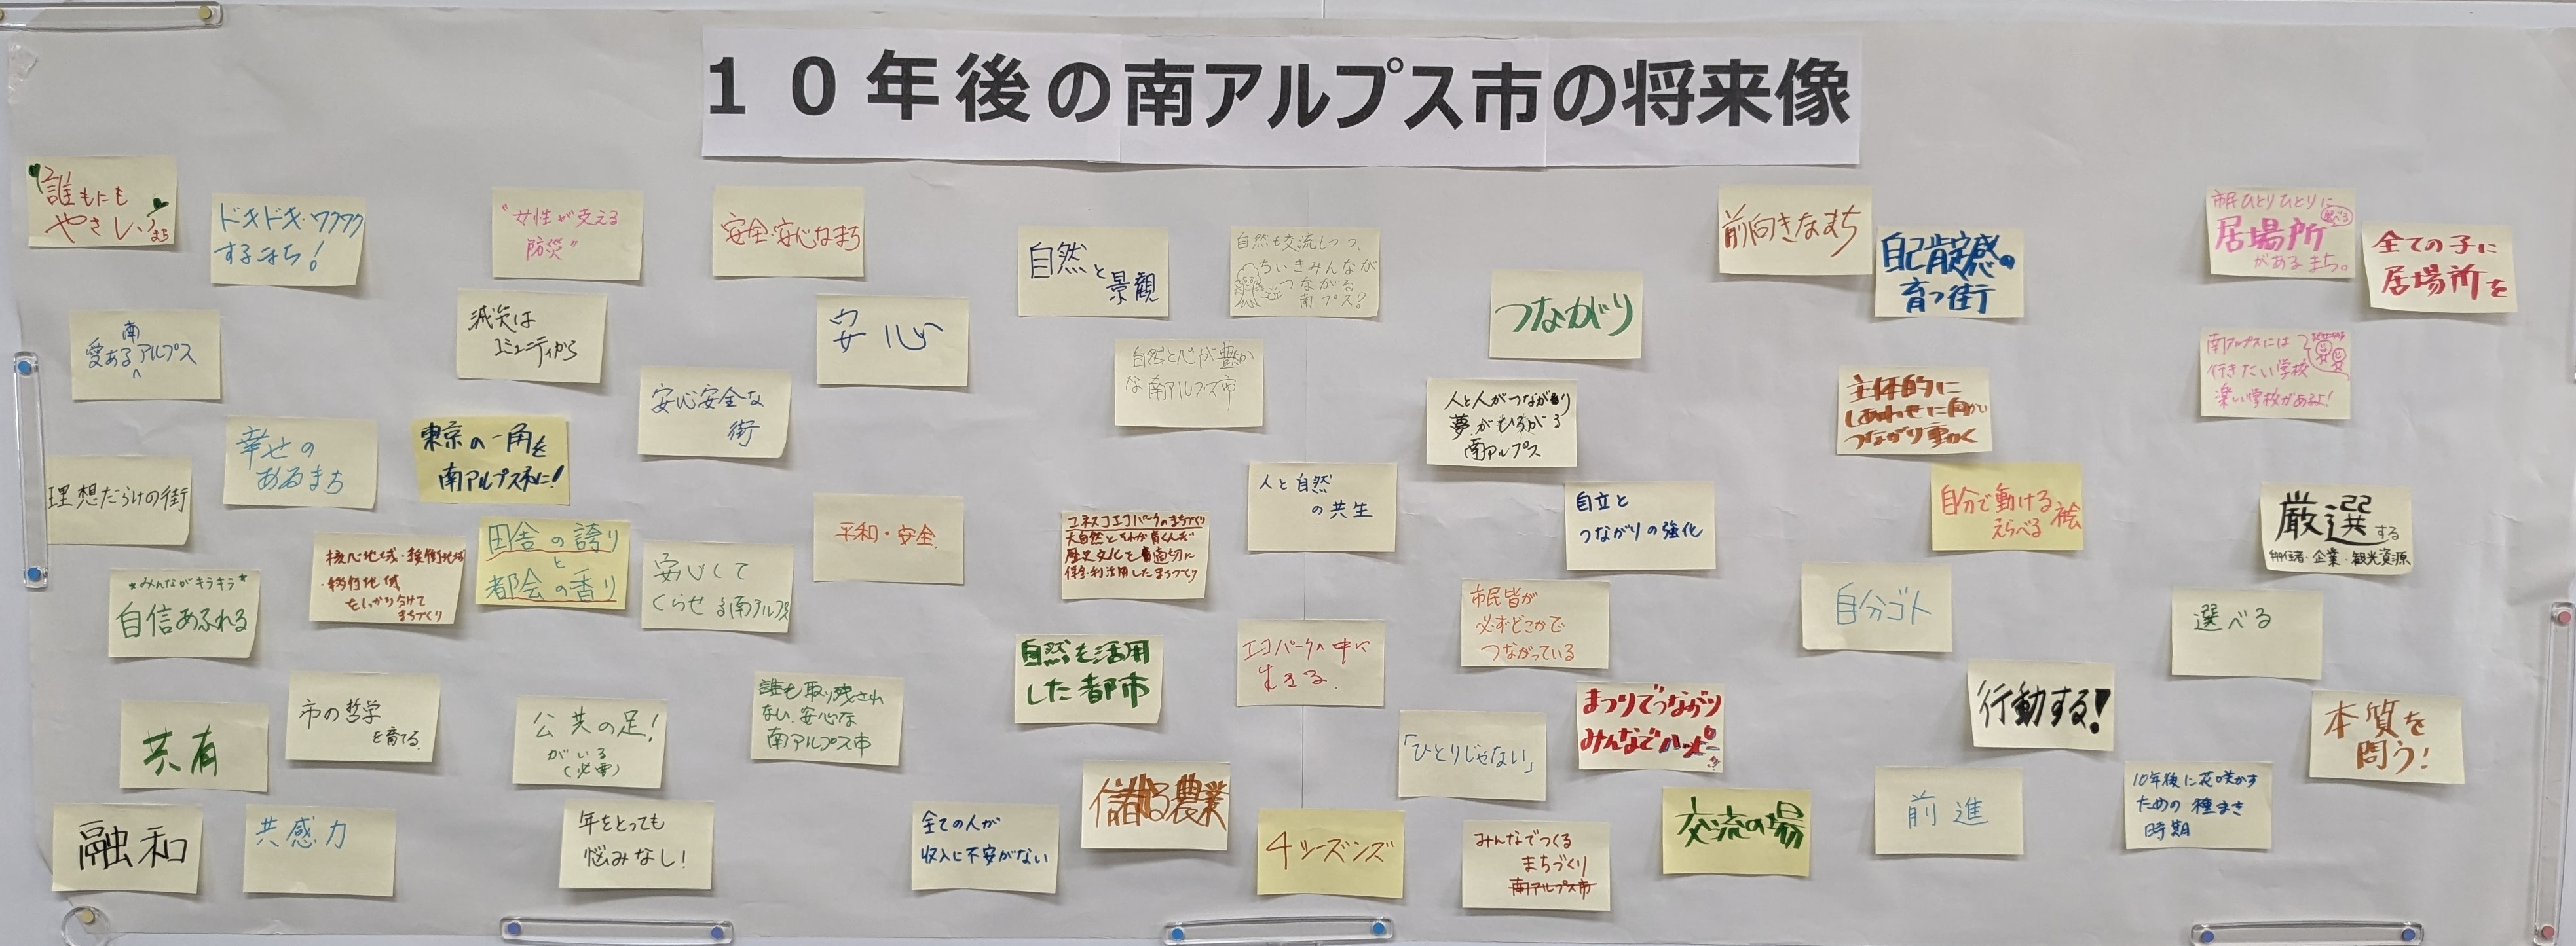 10年後の南アルプス市の将来像
誰もにも
やさしい
まち
ドキドキ・ワクワク
するまち！
"女性が支える
防災"
安全・安心なまち
自然と
景観
自然も交流しつつ、
ちいきみんなが
つながる
南プス！
つながり
前向きなまち
自己肯定感の
育つ街
市民ひとりひとりに
選べる
居場所
があるまち。
全ての子に
居場所を
南
愛あるアルプス
減災は
コミュニティから
安心
安心安全な
街
自然と心が豊か
な南アルプス市
人と人がつながり
夢がひろがる
南アルプス
主体的に
しあわせに向かい
つながり動く
南アルプスには
行きたい学校
楽しい学校があるよ！
幸せの
あるまち
東京の一角を
南アルプス市に！
理想だらけの街
人と自然
の共生
自立と
つながりの強化
自分で動ける
えらべる
厳選する
移住者・企業・観光資源
平和・安全
ユネスコエコパークのまちづくり
大自然とそれが育くんだ
歴史文化を適切に
保全・利活用したまちづくり
核心地域・緩衝地域
・移行地域
をしっかり分けて
まちづくり
田舎の誇り
と
都会の香り
安心して
くらせる南アルプス
★みんながキラキラ★
自信あふれる
市民皆が
必ずどこかで
つながっている
自分ゴト
選べる
自然を活用
した都市
エコパークの中に
生きる。
行動する！
まつりでつながり
みんなでハッピー
共有
市の哲学
を育てる。
公共の足！
がいる
（必要）
誰も取り残され
ない、安心な
南アルプス市
「ひとりじゃない」
本質を
問う！
儲る農業
10年後に花咲かす
ための種まき
時期
前進
交流の場
融和
共感力
年をとっても
悩みなし！
全ての人が
収入に不安がない
4シーズンズ
みんなでつくる
まちづくり
南アルプス市